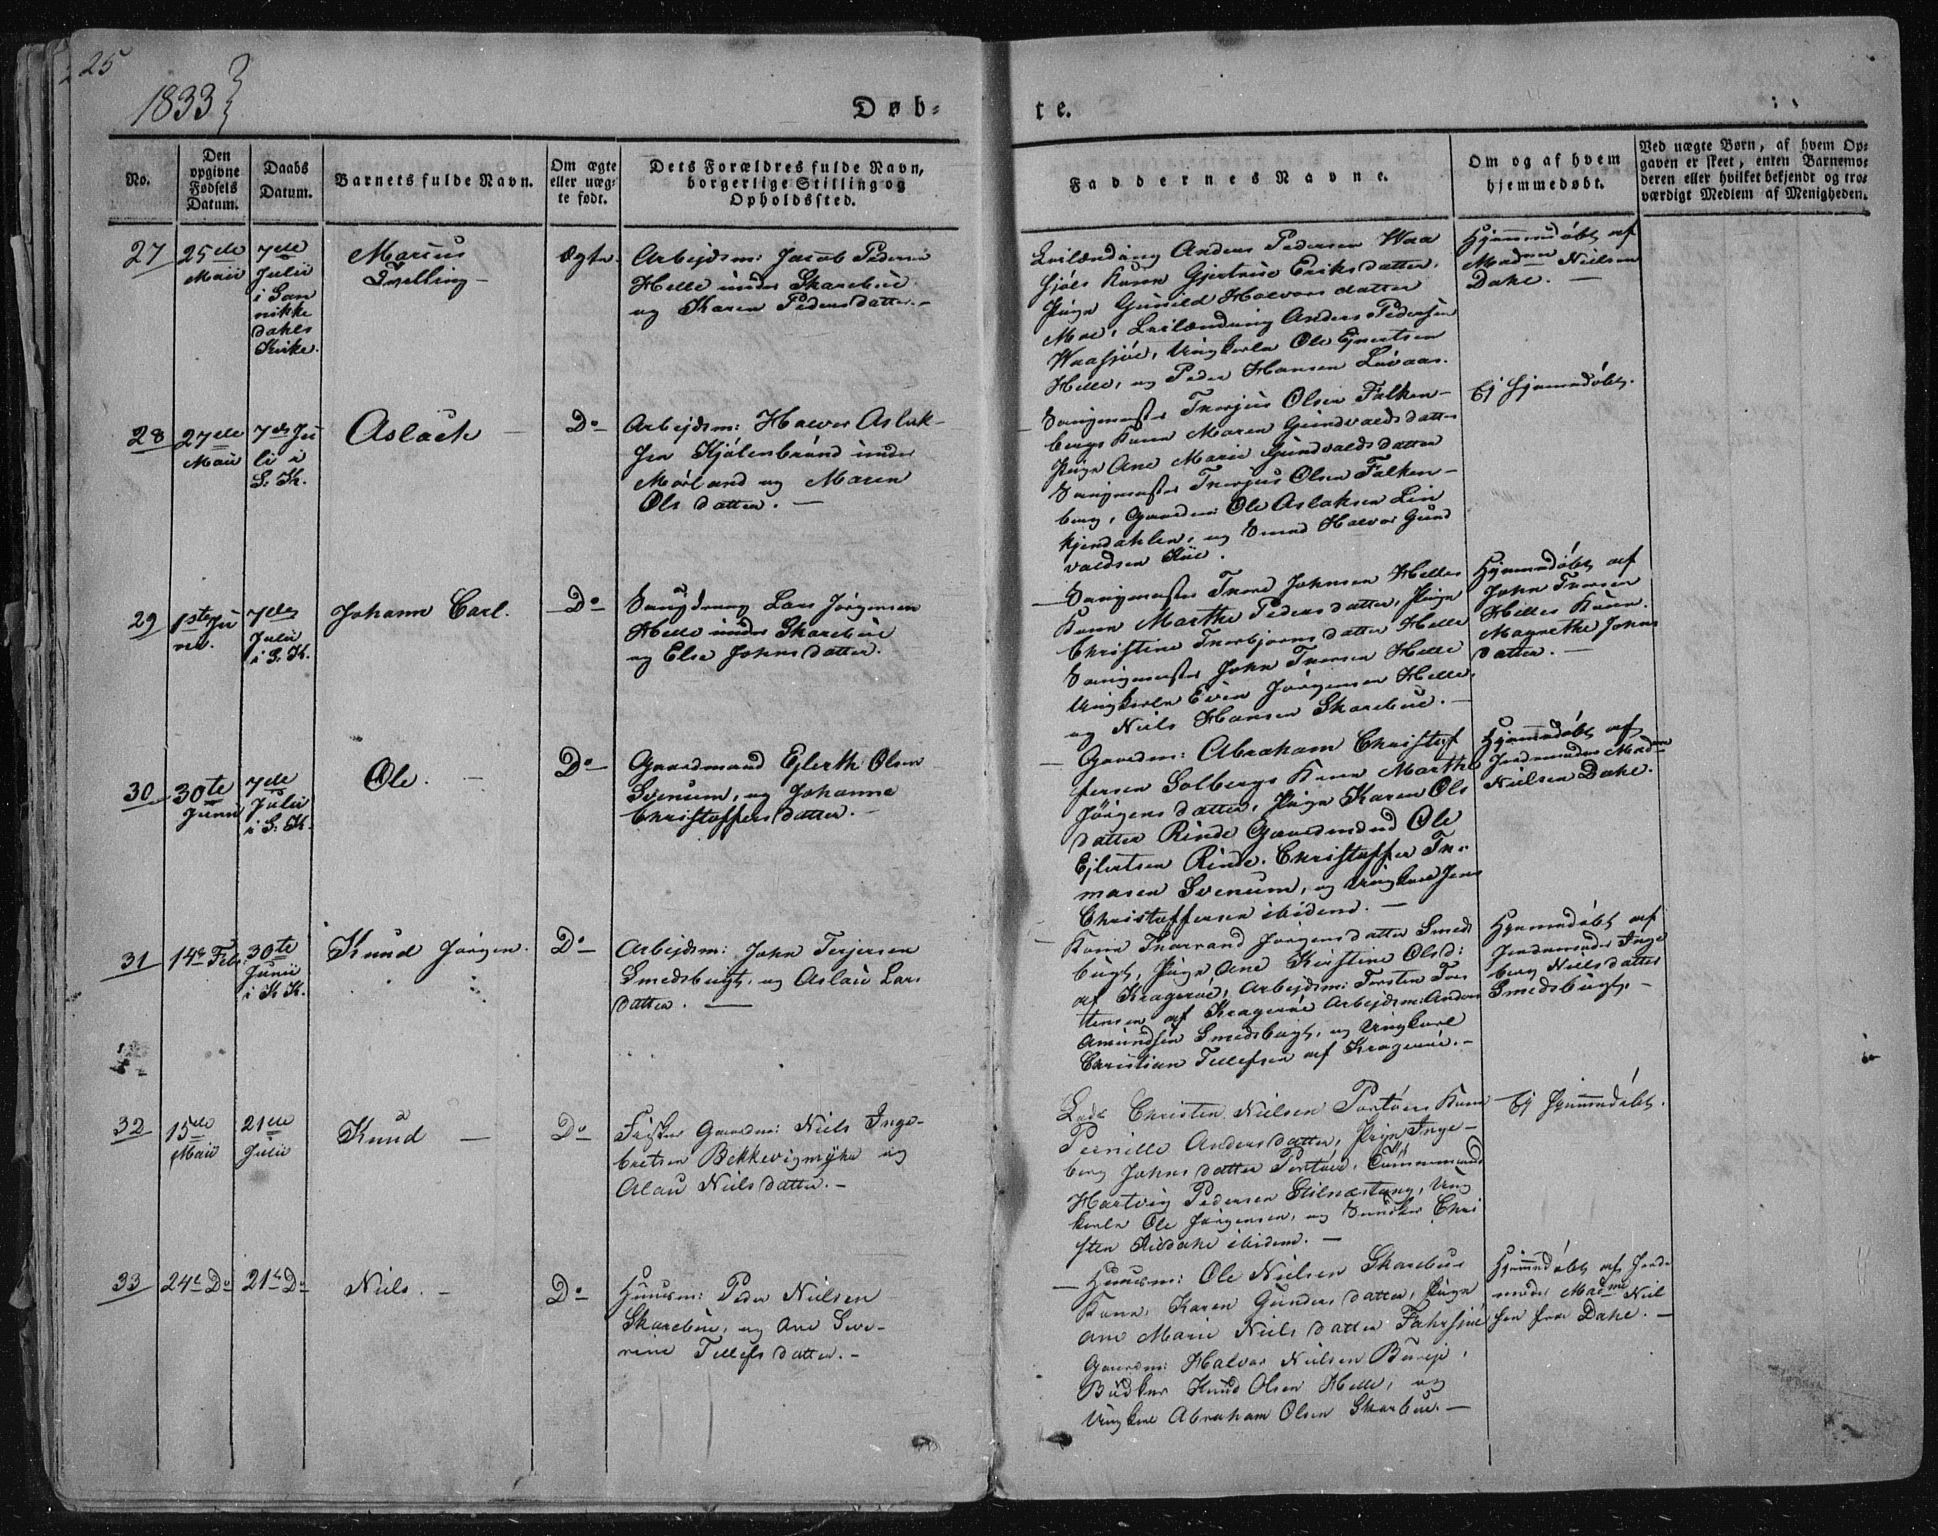 25
1833
Døb-
te.
No.
Den
opgivne
Fødsels
Datum.
Daabs
Datum.
Barnets fulde Navn.
Om ægte
eller uæg-
te født.
Dets Forældres fulde Navn,
borgerlige Stilling og
Opholdssted.
Faddernes Navne.
Om og af hvem
hjemmedøbt.
Ved uægte Børn, af hvem Op-
gaven er skeet, enten Barnemo-
deren eller hvilket bekjendt og tro-
værdigt Medlem af Menigheden.
27
25de
Maii
7de
Julii
i San
nikke
dahls
Kirke.
Marius
Tvelling
ægte
Arbejdsm: Jacob Pedersen
Helle under Skarebue
og Karen Pedersdatter.
Leilænding Anders Pedersen Waa
sjøls Kone Gjertrue Eriksdatter,
Pige Gunild Halvorsdatter
Moe, Leilænding Anders Pedersen
Waasjøe, Ungkarle Ole Ejvertsen
Helle, og Peder Hansen Løvaas.
Hjemmedøbt af
Madme Nielsen
Dahe.
28
27de
Maii
7de Ju
li i
S. K.
Aslach
Do
Arbejdsm: Halvor Aslak-
sen Kjølenbrønd under
Mørland og Maren
Olsdatter.
Saugmester Thorjus Olsen Falken-
bergs Kone Maren Gundvaldsdatter
Pige Ane Marie Gundvaldsdatter
Saugmester Thorjus Olsen Falken-
berg, Gaardm: Ole Aslaksen Lin
kjendahlen, og Smed Halvor Gund
valdsen
Ej hjemmedøbt.
29
1ste Ju
ni.
7de
Julii
i S. K.
Johann Carl.
Do
Saugdreng Lars Jørgensen
Helle under Skarebue
og Else Johnsdatter.
Saugmester Thore Johnsen Helles
Kone Marthe Pedersdatter, Pige
Christine Thorbjørnsdatter Helle
Saugmester John Thoresen Helle
Ungkarle Even Jørgensen Helle,
og Niels Hansen Skarebue.
Hjemmedøbt af
John Thorsen
Helles Kone
Magrethe Johns
datter.
30
30te
Junii
7de
Julii
i S. K.
Ole.
Do
Gaardmand Ejlerth Olsen
Svenum, og Johanne
Christoffersdatter.
Gaardm: Abraham Christof
fersen Solbergs Kone Marthe
Jørgensdatter, Pige Karen Ols
datter Rinde Gaardmænd Ole
Ejlertsen Rinde, Christoffer Tho-
masen Svenum, og Ungkarl Jens
Christoffersen ibidem.
Hjemmedøbt af
Jordmoder Madme
Nielsen Dahe.
31
14de Febr.
30te
Junii
i K K.
Knud Jørgen.
Do
Arbejdsm: John Terjesen
Smedsbugt, og Aslau Lars
datter.
Kone Thorrand Jørgensdatter Smed
bugt, Pige Ane Kirstine Olsd:
af Kragerøe, Arbejdsm: Torsten Tors
tensen af Kragerøe Arbejdsm: Anders
Amundsen Smedsbugt, og Ungkarl
Christian Tellefsen af Kragerøe.
Hjemmedøbt af
Jordemoder Inge
berg Nielsdatter
Smedsbugt.
32
15de
Maii
21de
Julii
Knud
Do
Fisker Gaardm: Niels Inge-
bretsen Bekkevigmyhr og
Aslau Nielsdatter.
Lods Christen Nielsen Portøers Kone
Pernille Andersdatter, Pige Inge-
borg Johnsdatter Portøer, Tømmermand
Hartvig Pedersen Stilnæstang, Ung
karle Ole Jørgensen, og Snedker Chri
sten ibidem.
Ej hjemmedøbt.
33
24de Do
21de Do
Niels.
Do
Huusm: Peder Nielsen
Skarebue, og Ane Seve-
rine Tellefsdatter.
Huusm: Ole Nielsen Skarebues
Kone, Karen Gundersdatter, Pige
Ane Marie Nielsdatter Fahrsjøe
Gaardm: Halvor Nielsen Burøe,
Bødker Knud Olsen Helle, og
Ungkarl Abraham Olsen Skarbue.
Hjemmedøbt af Jorde
moder Madme Niel
sen fra Dahe.